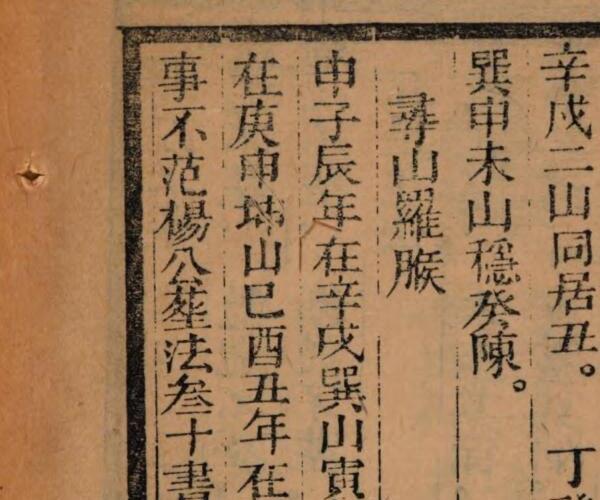 辛戌二山同居丑。 丁
巽申未山穩癸陳。
尋山羅睺
申子辰年在辛戌巽山寅
在庚申坤山巳酉丑年在
事不范楊公葬法叁十